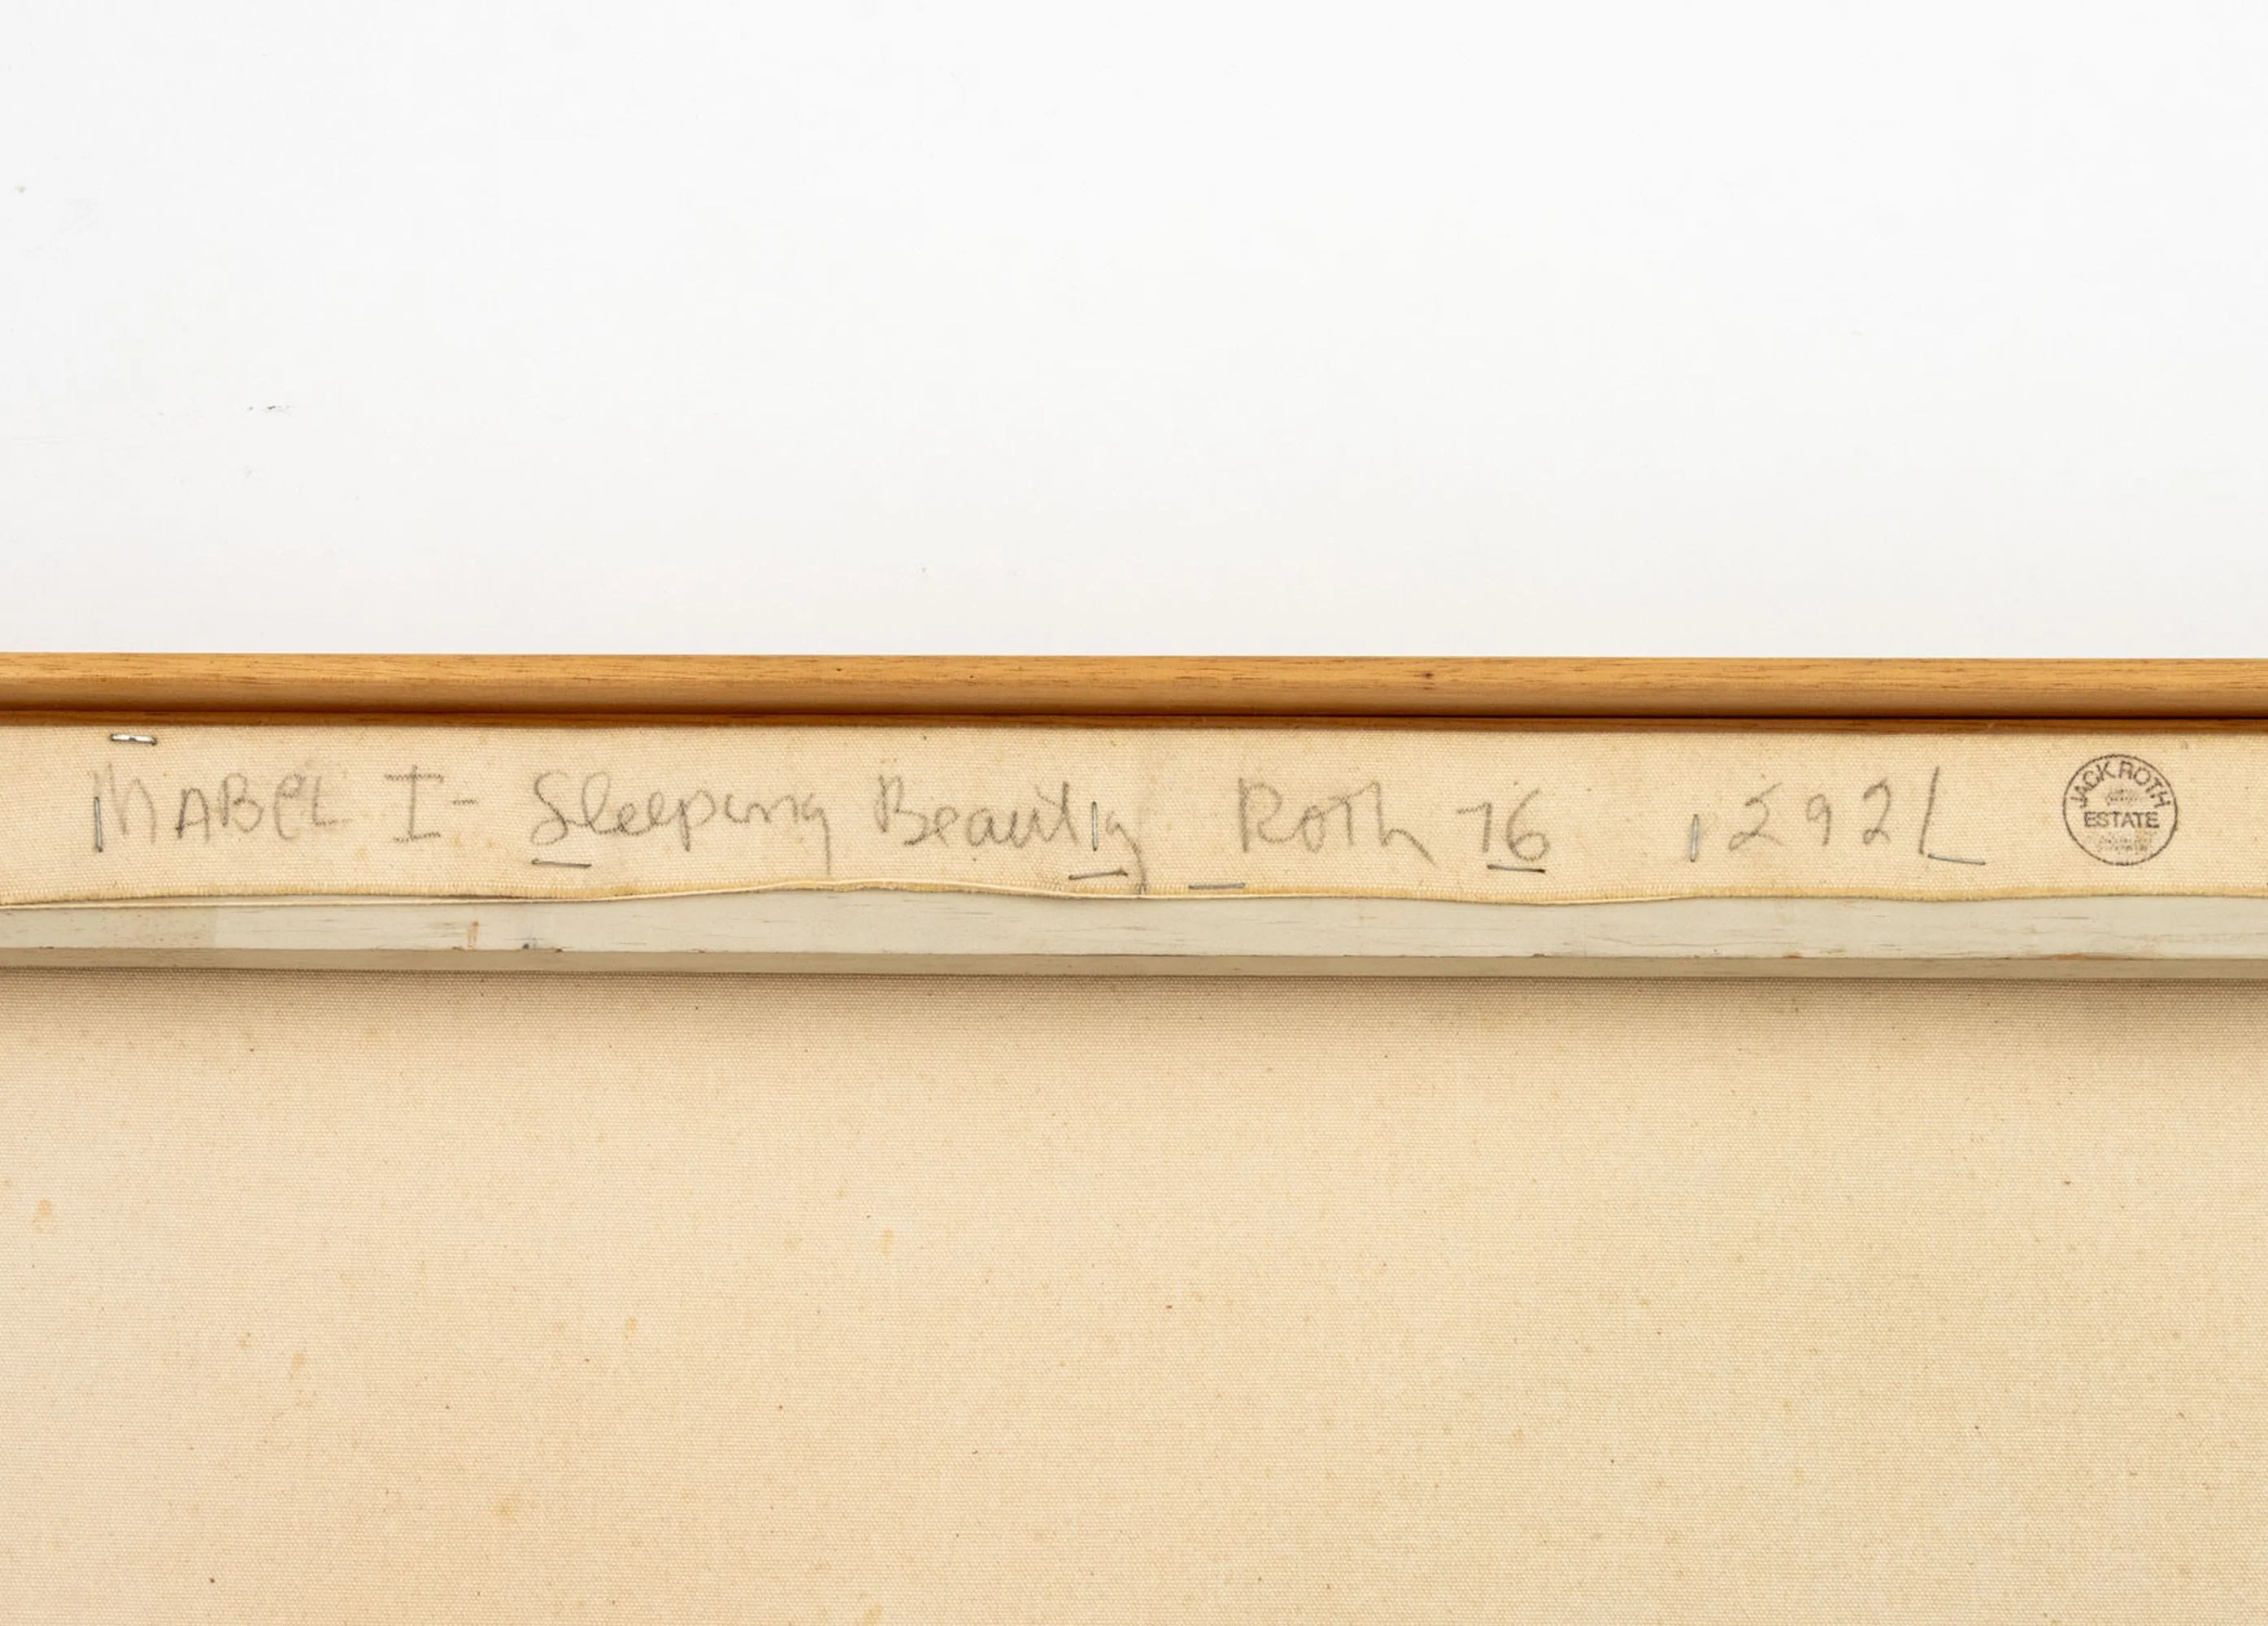 MABEL I- Sleeping Beauty Roth 76 292L
JACK ROTH
ESTATE